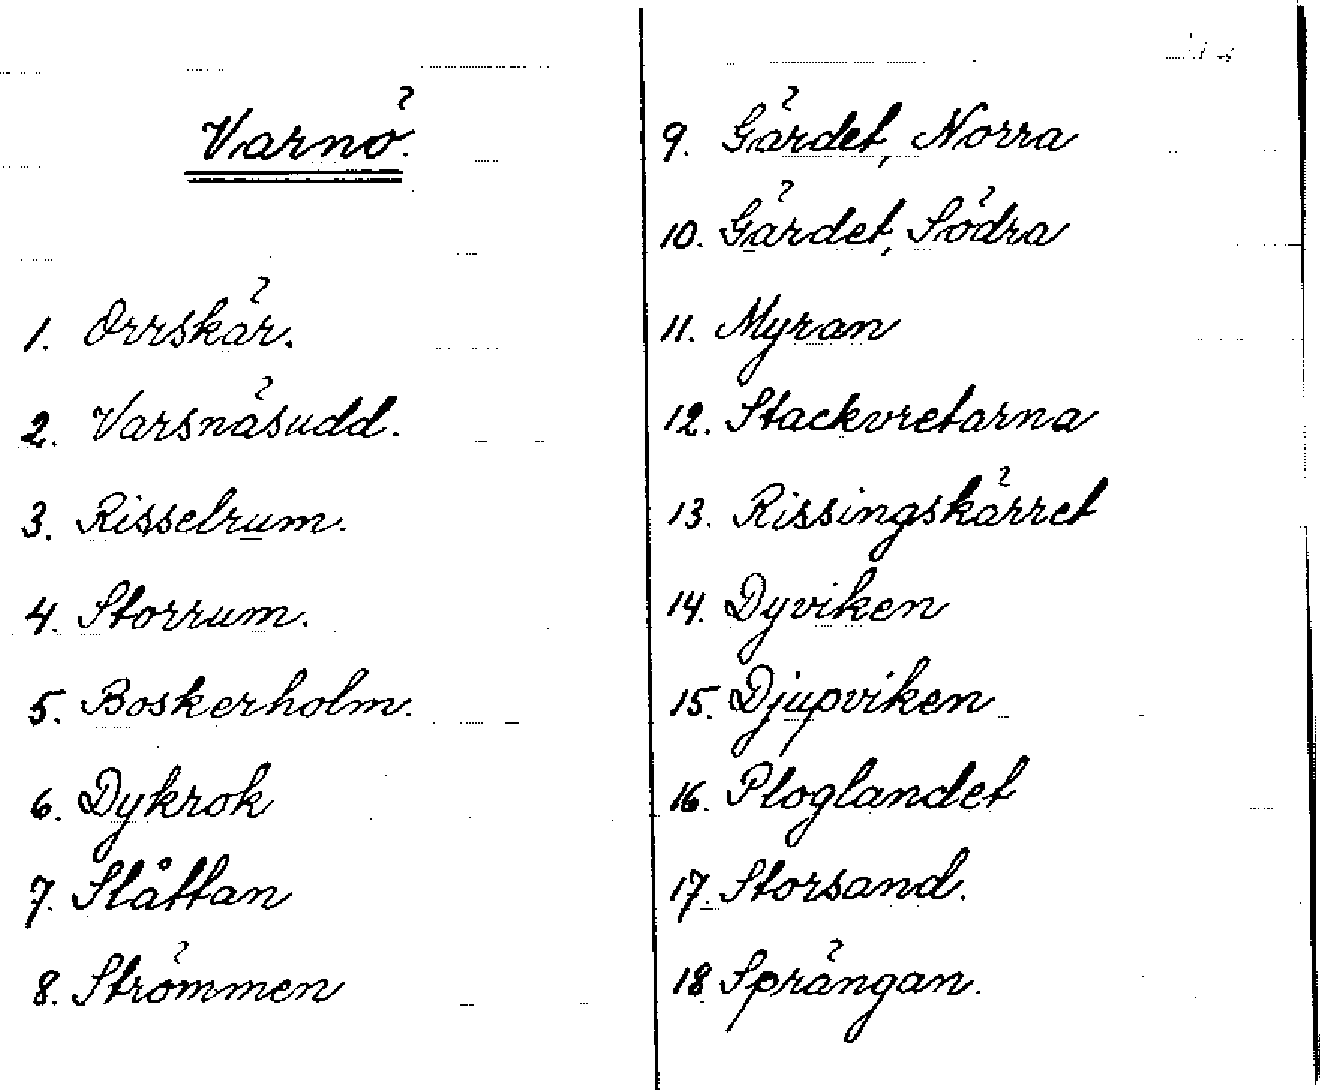 Varnö.
1. Orrskär.
2. Varsnäsudd.
3. Risselrum.
4. Storrum.
5. Boskerholm.
6. Dykrok
7. Slåttan
8. Strömmen
9. Gärdet, Norra
10. Gärdet, Södra
11. Myran
12. Stackvretarna
13. Rissingskärret
14. Dyviken
15. Djupviken
16. Ploglandet
17. Storsand.
18. Sprängan.